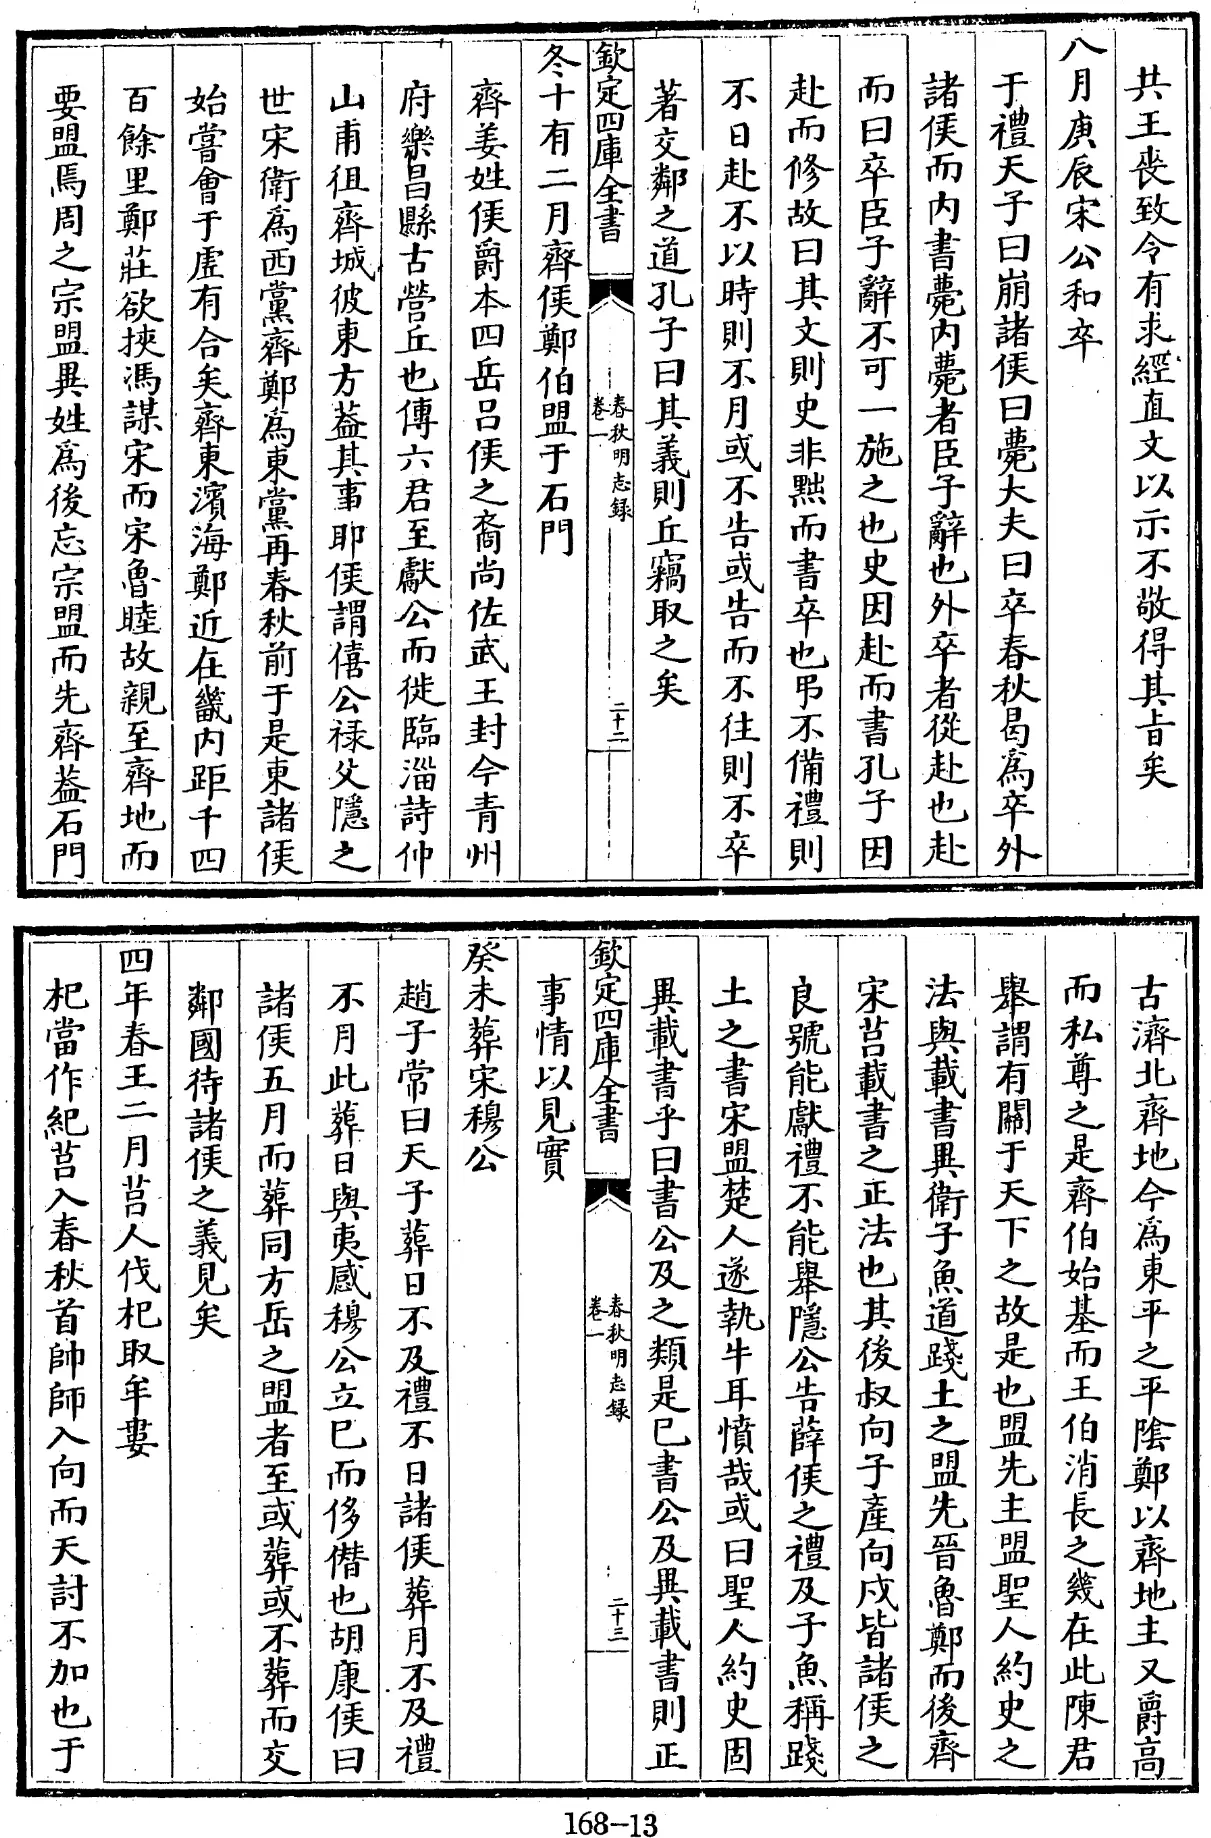 共王喪致令有求經直文以示不敬得其旨矣
八月庚辰宋公和卒
于禮天子曰崩諸侯曰薨大夫曰卒春秋曷爲卒外
諸侯而内書薨内薨者臣子辭也外卒者從赴也赴
而曰卒臣子辭不可一施之也史因赴而書孔子因
赴而修故曰其文則史非黜而書卒也弔不備禮則
不日赴不以時則不月或不告或告而不往則不卒
著交鄰之道孔子曰其義則丘竊取之矣
欽定四庫全書
春秋明志録
卷一
二十二
冬十有二月齊侯鄭伯盟于石門
齊姜姓侯爵本四岳吕侯之裔尚佐武王封今青州
府樂昌縣古營丘也傳六君至獻公而徙臨淄詩仲
山甫徂齊城彼東方葢其事耶侯謂僖公禄父隱之
世宋衛爲西黨齊鄭爲東黨再春秋前于是東諸侯
始嘗會于虛有合矣齊東濱海鄭近在畿内距千四
百餘里鄭莊欲挾馮謀宋而宋魯睦故親至齊地而
要盟焉周之宗盟異姓爲後忘宗盟而先齊葢石門
古濟北齊地今爲東平之平陰鄭以齊地主又爵高
而私尊之是齊伯始基而王伯消長之幾在此陳君
舉謂有關于天下之故是也盟先主盟聖人約史之
法與載書異衛子魚道踐土之盟先晉魯鄭而後齊
宋莒載書之正法也其後叔向子產向戌皆諸侯之
良號能獻禮不能舉隱公告薛侯之禮及子魚稱踐
土之書宋盟楚人遂執牛耳憤哉或曰聖人約史固
異載書乎曰書公及之類是已書公及異載書則正
欽定四庫全書
春秋明志録
卷一
二十三
事情以見實
癸未葬宋穆公
趙子常曰天子葬日不及禮不日諸侯葬月不及禮
不月此葬日與夷感穆公立已而侈僣也胡康侯曰
諸侯五月而葬同方岳之盟者至或葬或不葬而交
鄰國待諸侯之義見矣
四年春王二月莒人伐杞取牟婁
杞當作紀莒入春秋首帥師入向而天討不加也于
168-13